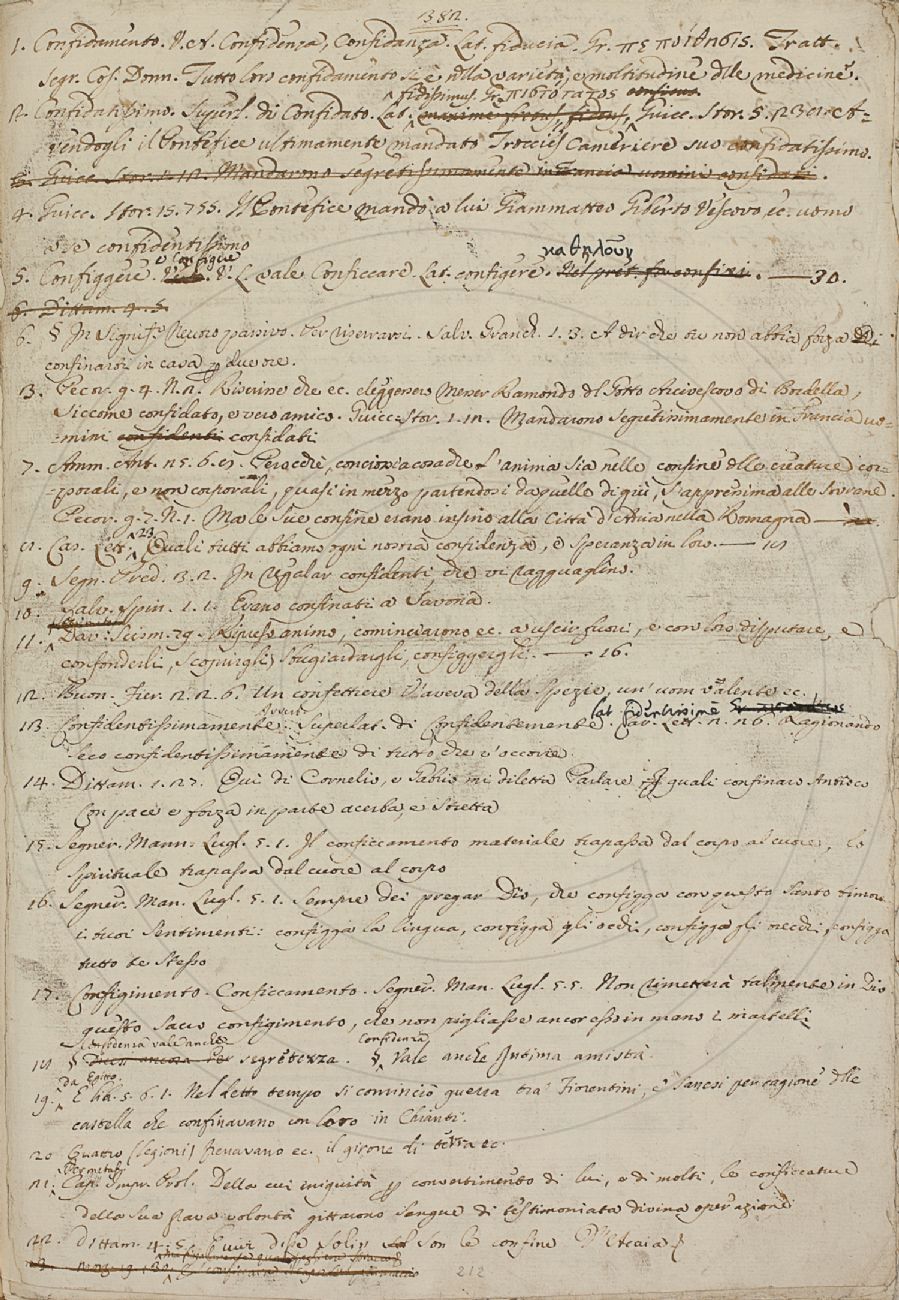 382.
1. Confidamento. V.A. Confidenza, Confidanza. Lat. fiducia. Gr. πεποίθησις. Tratt.
Segr. Cos. Donn. Tutto loro confidamento si è nella varietà, e moltitudine delle medicine.
fidissimus. Gr. πιστότατος
2. Confidatissimo. Superl. di Confidato. Lat. Guicc. Stor. 5. A-
vendogli il Pontefice ultimamente mandato Cameriere suo confidatissimo.
3. Guicc. Stor. 1. 12. Mandarono segretissimamente in Francia uomini confidati.
4. Guicc. Stor. 15. 755. Il Pontefice mandò a lui Giammatteo Giberto Vescovo, ec. uomo
confidentissimo
e Configgere καθηλοῦν
5. Configgere. V. L. vale Conficcare. Lat. configere. Nel pret. fa confissi. — 30.
6. Dittam. 4. 5.
6. § In Signific. Neutro passivo. Per riserrarsi. Salv. Granch. 1. 3. A dir che tu non abbia forza di
confinarti in casa p due ore.
13. Pecor. g. 4. N. 2. ec. eleggere Messer Ramondo del Gotto Arcivescovo di Bordella,
siccome confidato, e vero amico. Guicc. Stor. 1. 12. Mandarono segretissimamente in Francia uo-
mini confidenti confidati
7. Amm. Ant. 25. 6. Perocchè, conciossiacosachè l'anima sia nelle confine delle creature cor-
porali, e non corporali, quasi in mezzo partendosi da quelle di giù, s'appressima alle sovrane.
Pecor. g. 7. N. 1. Ma le sue confine erano insino alla Città d'Avia nella Romagna —
8. Cas. Lett. 23. Quali tutti abbiamo ogni nostra confidenza, e speranza in loro. — 18
9. Segn. Pred. 13. 2. In confidenti, che vi ragguaglino.
10. Salv. Spin. 1. 1. Erano confinati a Savona.
11. Dav. Scism. 29. Ripreso animo, cominciarono ec. a uscir fuori, e con loro disputare, e
confonderli, scoprirgli, sbugiardargli, configgergli. — 16.
12. Buon. Fier. 2. 2. 6. Un confettiere v'aveva della spezie, un' uom valente ec.
Avverb. lat. fidentissime
13. Confidentissimamente. Superlat. di Confidentemente. Cav. Lett. 2. 26. Ragionando
seco confidentissimamente di tutto che v'occorre.
14. Dittam. 1. 27. Qui di Cornelio, e Fabio mi diletta Parlare I quali confinaro Antioco
Con pace e forza in parte acerba, e stretta
15. Segner. Mann. Lugl. 5. 1. Il conficcamento materiale trapassa dal corpo al cuore, lo
spirituale trapassa dal cuore al corpo
16. Segner. Man. Lugl. 5. 1. Sempre dei pregar Dio, che configga con questo santo timore
i tuoi sentimenti: configga la lingua, configga gli occhi, configga gli orecchi, configga
tutto te stesso
17. Configimento. Conficcamento. Segner. Man. Lugl. 5. 5. Non rimetterà talmente in Dio
questo sacro configimento, che non pigliasse ancor esso in mano i martelli
Confidenza vale anche Confidenza
18 § Dicesi ancora Per segretezza. § Vale anche Intima amistà.
da Egitto
19. E lib. 5. 6. 1. Nel detto tempo si cominciò guerra tra' Fiorentini, e Sanesi per cagione delle
castella che confinavano con loro in Chianti.
20 Quattro (legioni) frenavano ec. il girone di terra ec.
21. Cap. Impr. Prol. Della cui iniquità p convertimento di lui, e di molti, le conficcature
della sua prava volontà gittarono sangue di testimoniata divina operazione
22. Dittam. 4. 5. dise Solin son le confine
212